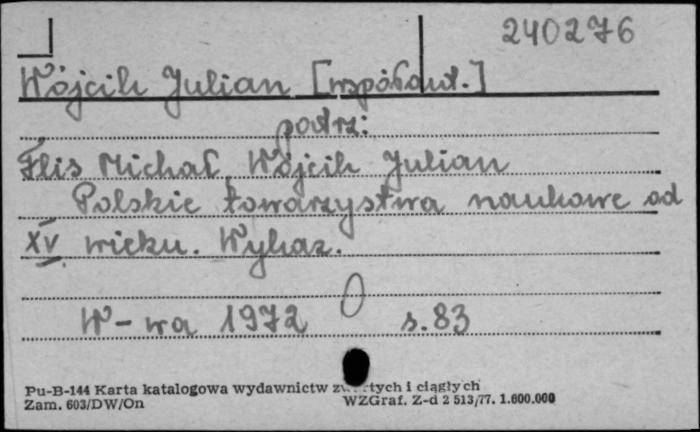 240276
Wójcik Julian [współaut.]
patrz:
Flis Michał, Wójcik Julian
Polskie towarzystwa naukowe od
XV wieku. Wykaz.
W-wa 1972 s. 83
Pu-B-144 Karta katalogowa wydawnictw zwartych i ciągłych
Zam. 603/DW/On WZGraf. Z-d 2 513/77. 1.600.000